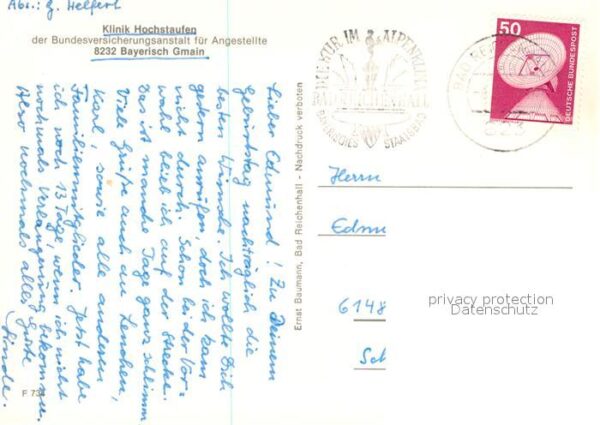 Abs.: G. Helfert
Klinik Hochstaufen
der Bundesversicherungsanstalt für Angestellte
8232 Bayerisch Gmain
Lieber Edmund! Zu Deinem
Geburtstag nachträglich die
besten Wünsche. Ich wollte Dich
gestern anrufen, doch ich kam
nicht durch. Schon bei der Vor-
wahl blieb ich auf der Strecke.
Das ist manche Tage ganz schlimm
Viele Grüße auch an Lenchen,
Karl, sowie alle anderen
Familienmitglieder. Jetzt habe
ich noch 13 Tage, wenn ich nicht
nochmals Verlängerung bekomme.
Also nochmals alles Gute
Linde.
F 734
Ernst Baumann, Bad Reichenhall - Nachdruck verboten
ZUR KUR IM ALPENKLIMA
BAD REICHENHALL
BAYERISCHES STAATSBAD
50
DEUTSCHE BUNDESPOST
Herrn
Edmu
6148
Sch
privacy protection
Datenschutz